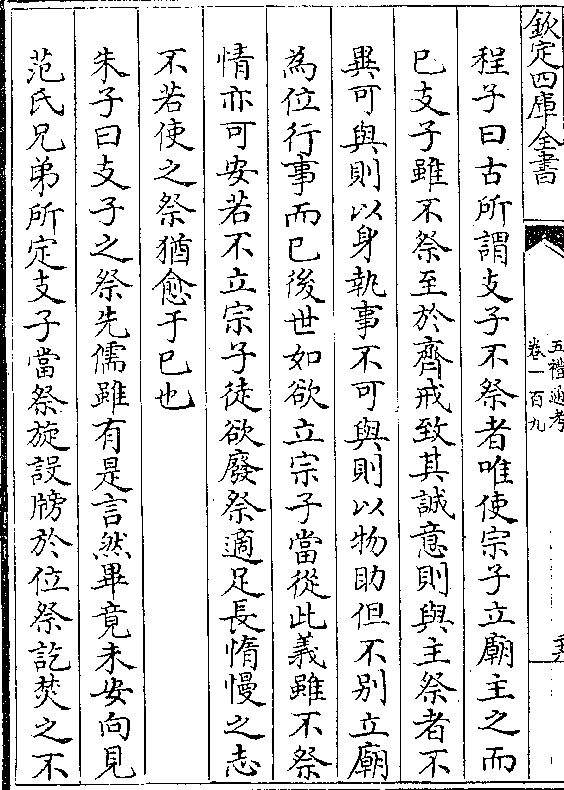 欽定四庫全書
五禮通考
卷一百九
程子曰古所謂支子不祭者唯使宗子立廟主之而
已支子雖不祭至於齊戒致其誠意則與主祭者不
異可與則以身執事不可與則以物助但不别立廟
為位行事而已後世如欲立宗子當從此義雖不祭
情亦可安若不立宗子徒欲廢祭適足長惰慢之志
不若使之祭猶愈于已也
朱子曰支子之祭先儒雖有是言然畢竟未安向見
范氏兄弟所定支子當祭旋設牓於位祭訖焚之不